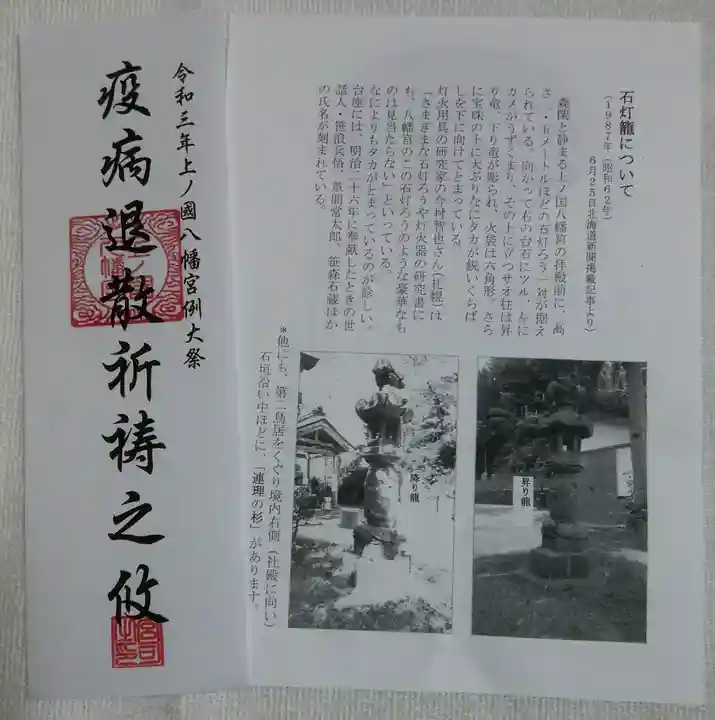 石灯籠について
(1987年(昭和62年)
6月25日北海道新聞掲載記事より)
森閑と静まる上ノ国八幡宮の拝殿前に、高
さ二・五メートルほどの石灯ろう一対が据え
られている。向かって右の台石にツル、左に
カメがうずくまり、その上に立つサオ柱は昇
り竜、下り竜が彫られ、火袋は六角形。さら
に宝珠の上に大ぶりなにタカが鋭いくちば
しを下に向けてとまっている。
灯火用具の研究家の今村智也さん(札幌)は
「さまざまな石灯ろうや灯火器の研究書に
も、八幡宮のこの石灯ろうのような豪華なも
のは見当たらない」といっている。
なによりもタカがとまっているのが珍しい。
台座には、明治二十六年に奉献したときの世
話人・笹浪兵悟、草間常太郎、笹森石蔵ほか
の氏名が刻まれている。
昇り龍
降り龍
*他にも、第二鳥居をくぐり境内右側(社殿に向い)
石垣沿い中ほどに、「連理の杉」があります。
令和三年上ノ國八幡宮例大祭
疫病退散祈祷之攸